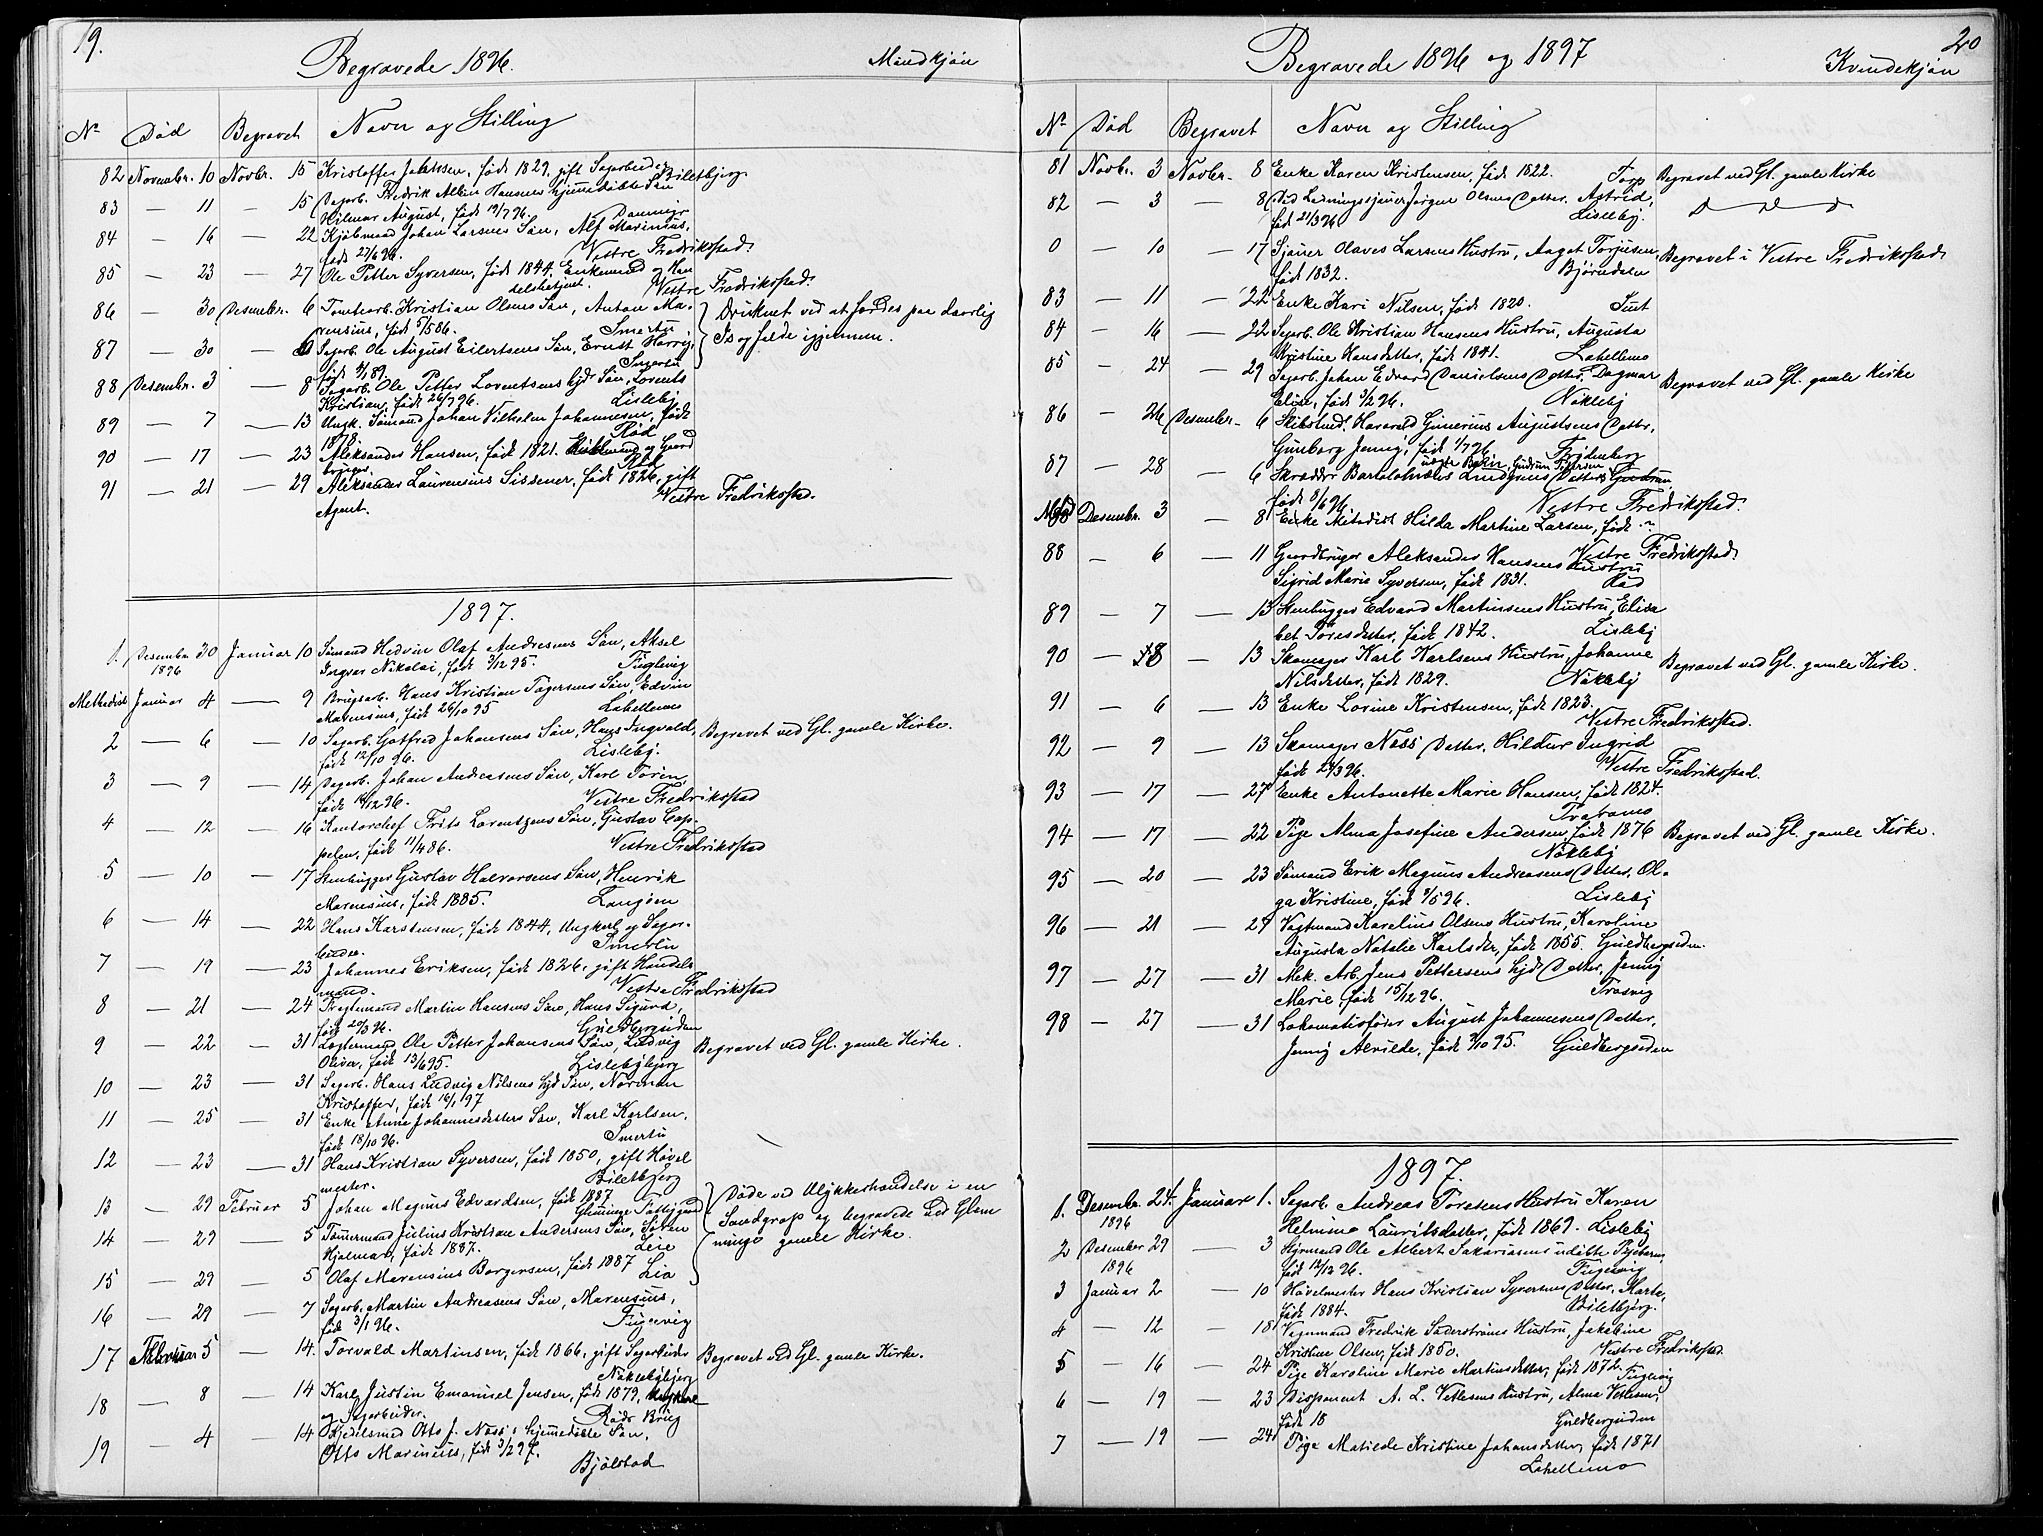 19.
Begravede 1896. Mandkjön
No Död Begravet Navn og Stilling
82 Novembr. 10 Novbr. 15 Kristoffer Johnsen, född 1829, gift Sagarbeider
Biletbjerg
83 — 11 — 15 Dagarb. Fredrik Albin Hansens hjemmedöbte Sön
Hilmar August, född 19/7 96.
84 — 16 — 22 Kjöbmand Johan Larsens Sön, Alf Marinius,
född 27/6 96. Vestre Fredriksstad.
85 — 23 — 27 Ole Petter Syversen, född 1844, Enkemand og Han
delsbetjent. Vestre Fredriksstad.
86 — 30 Desembr. 6 Tomtearb. Kristian Olsens Sön, Anton Ma- Druknet ved at færdes paa daarlig
rensius, född 5/5 86. Smertu
87 — 30 — 6 Sagarb. Ole August Eilertsens Sön, Ernst Harry, Is og falde igjennem.
född 4/1 89. Smertu
88 Desembr. 3 — 8 Sagarb. Ole Petter Lorentsens hjd Sön, Lorents
Kristian, född 26/7 96. Lisleby
89 — 7 — 13 Ungk. Sömand Johan Vilhelm Johannesen, född
1878. Röd
90 — 17 — 23 Aleksander Hansen, född 1821. og Gaard
bruger. Röd
91 — 21 — 29 Aleksander Laurensius Sissener, född 1826, gift
Agent. Vestre Fredriksstad.
1897.
1. Desember 30 Januar 10 Sömand Hedvin Olaf Andresens Sön, Aksel
1896 Jørgen Nikolai, född 3/12 95. Fuglevig
Methodist Januar 4 — 9 Brugsarb. Hans Kristian Tögersens Sön, Edvin
Marensius, född 26/10 95 Labellmo
2 — 6 — 10 Sagarb. Gotfred Johansens Sön, Hans Ingvald, Begravet ved Gl. gamle Kirke.
född 12/10 96. Lisleby.
3 — 9 — 14 Dagarb. Johan Andreasens Sön, Karl Torin,
född 14/12 96. Vestre Fredriksstad
4 — 12 — 16 Kontorchef Frits Lorentzens Sön, Gustav Cap-
pelen, född 11/4 86. Vestre Fredriksstad
5 — 10 — 17 Stenhugger Gustav Halvorsens Sön, Henrik
Marensius, född 1885. Langöen
6 — 14 — 22 Hans Karstensen, född 1844, Ungkarl og Sagar-
beider. Smertu
7 — 19 — 23 Johannes Eriksen, född 1826, gift Handels
mand. Vestre Fredriksstad
8 — 21 — 24 Fragtemand Martin Hansens Sön, Hans Sigurd,
född 29/3 96. Guldbergsiden
9 — 22 — 31 Lægtemand Ole Petter Johansens Sön, Ludvig Begravet ved Gl. gamle Kirke.
Oliver, född 13/6 95. Lislebybjerg
10 — 23 — 31 Sagarb. Hans Ludvig Nilsens hjd Sön, Norman
Kristoffer, född 16/1 97
11 — 25 — 31 Enke Anna Johannesdatters Sön, Karl Karlsen,
född 18/10 96. Smertu
12 — 23 — 31 Hans Kristian Syversen, född 1850, gift Hövel
mester. Biletbjerg
13 — 29 Februar 5 Johan Magnus Edvardsen, född 1887 Döde ved Ulykkeshændelse i en
Glemminge Fattiggaard
14 — 29 — 5 Tömmermand Julius Kristian Andersens Sön, Sören Sandgrop og begravede ved Glem
Hjalmar, född 1887. Leie minge gamle Kirke.
15 — 29 — 5 Olaf Marensius Borgersen, född 1887 Lia
16 — 29 — 7 Sagarb. Martin Andreasens Sön, Marensius,
född 3/1 96. Fuglevig
17 Februar 5 — 14. Torvald Martinsen, född 1866, gift Sagarbeider Begravet ved Gl. gamle Kirke.
Nöklebybjerg
18 — 8 — 14 Karl Justin Emanuel Jensen, född 1879, Ungkarl
og Sagarbeider. Röds Brug
19 — 4 — 14 Kjedelsmed Otto J. Næss's hjemmedöbte Sön,
Otto Marinius, född 3/2 97.
Bjölstad
20
Begravede 1896 og 1897 Kvindekjön
No Död Begravet Navn og Stilling
81 Novbr. 3 Novbr. 8 Enke Karen Kristensen, född 1822. Torp Begravet ved Gl. gamle Kirke
82 — 3 — 8 Ved Ladningssjauer Jørgen Olsens Datter, Astrid, D D D
född 21/3 96 Lisleby.
0 — 10 — 17 Sjauer Olaves Larsens Hustru, Aagot Torjusen, Begravet i Vestre Fredriksstad.
född 1832. Björndalen
83 — 11 — 22 Enke Kari Nilsen, född 1820. Sut
84 — 16 — 22 Sagarb. Ole Kristian Hansens Hustru, Augusta
Kristine Hansdatter, född 1841. Labellmo
85 — 24 — 29 Sagarb. Johan Edvard Danielsens Datter, Dagmar Begravet ved Gl. gamle Kirke
Elise, född 4/2 96. Nökleby
86 — 26 Desembr. 6 Skibstmd. Haavald Gunerius Augustsens Datter,
Gunborg Jenny, född 1/7 96 Frydenberg
87 — 28 — 6 Skrædder Bartolomæus Lindgrens Datter Gudrun,
uægte Barn, Gudrun Petersen
född 8/6 96. Vestre Fredriksstad.
Desembr. 3 — 8 Enke Metodist Hilda Martine Larsen, född ?
88 — 6 — 11 Gaardbruger Aleksander Hansens Hustru Vestre Fredriksstad.
Sigrid Marie Syversen, född 1831. Röd
89 — 7 — 13 Stenhugger Edvard Martinsens Hustru, Elisa
bet Toresdatter, född 1842. Lisleby
90 — 8 — 13 Skomager Karl Karlsens Hustru, Johanne Begravet ved Gl. gamle Kirke.
Nilsdatter, född 1829. Nökleby
91 — 6 — 13 Enke Lovine Kristensen, född 1823.
Vestre Fredriksstad.
92 — 9 — 13 Skomager Næss Datter, Hildur Ingrid
född 24/3 96. Vestre Fredriksstad.
93 — 17 — 27 Enke Antonette Marie Hansen, född 1824.
94 — 17 — 22 Pige Alma Josefine Andersen, född 1876 Begravet ved Gl. gamle Kirke.
Nökleby
95 — 20 — 23 Sömand Erik Magnus Andreasens Datter, Ol-
ga Kristine, född 9/5 96. Lisleby
96 — 21 — 24 Vagtmand Karelius Olsens Hustru, Karoline
Augusta Natalie Karlsdtr, född 1855. Guldbergsiden
97 — 27 — 31 Mek. Arb. Jens Pettersens hjd Datter, Jenny
Marie, född 15/12 96. Trosvig
98 — 27 — 31 Lokomotivförer August Johannesens Datter,
Jenny Alvilde, född 9/10 95. Guldbergsiden
1897.
1. Desembr. 24. Januar 1. Sagarb. Andreas Toresens Hustru Karen
1896 Helmine Lauritsdatter, född 1869. Lisleby
2 Desember 29 — 3 Styrmand Ole Albert Sakariasens udöbte Pigebarn,
1896 född 12/12 96. Fuglevig
3 Januar 2 — 10 Hövelmester Hans Kristian Syversens Datter, Marte,
född 1884. Biletbjerg.
4 — 12 — 18 Vognmand Fredrik Söderströms Hustru, Jakobine
Kristine Olsen, född 1850. Vestre Fredriksstad
5 — 16 — 24 Pige Karoline Marie Martinsdatter, född 1872.
Fuglevig
6 — 19 — 23 Disponent A. L. Vetlesens Hustru, Alma Vetlesen,
född 18 Guldbergsiden
7 — 19 — 24 Pige Matilde Kristine Johansdatter, född 1871
Labellmo